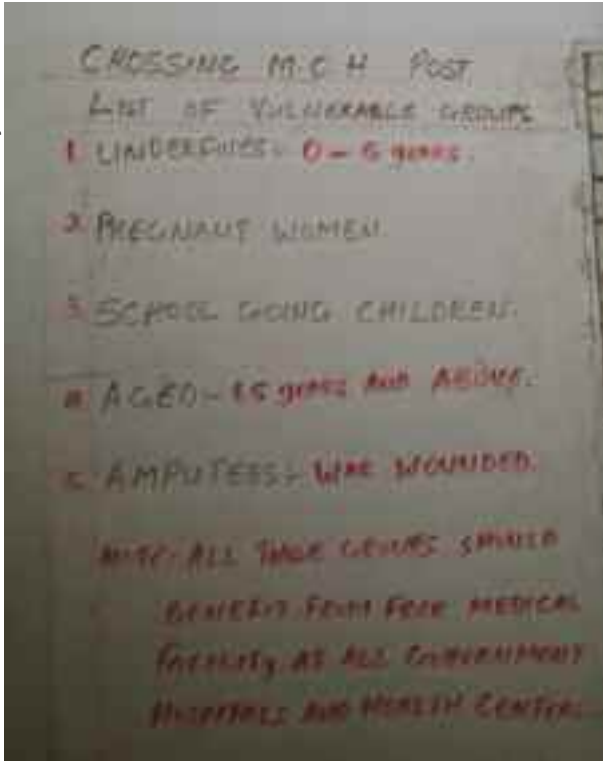 CROSSING M.C.H POST
LIST OF VULNERABLE GROUPS
1. UNDERFIVES - 0 - 5 years.
2. PREGNANT WOMEN.
3. SCHOOL GOING CHILDREN.
4. AGED - 65 years AND ABOVE.
5. AMPUTEES - WAR WOUNDED.
NOTE - ALL THESE GROUPS SHOULD
BENEFIT FROM FREE MEDICAL
FACILITY AT ALL GOVERNMENT
HOSPITALS AND HEALTH CENTRES